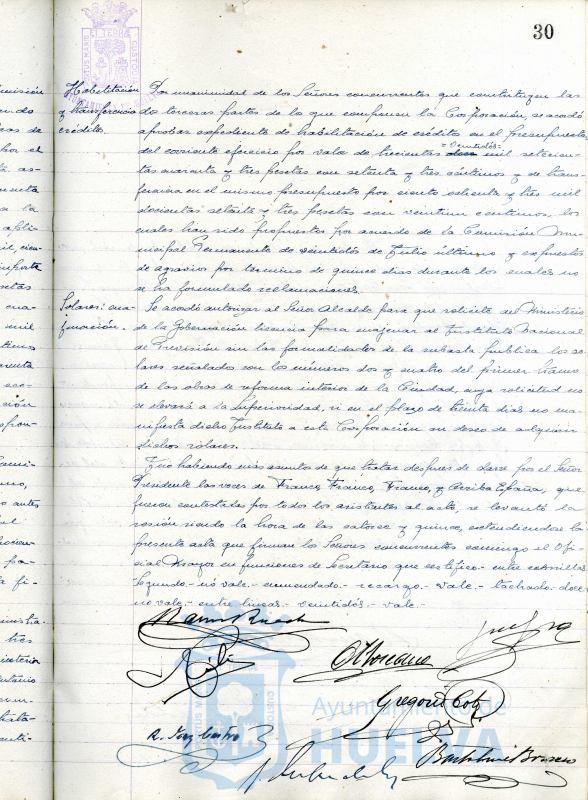 30
Habilitación
y transferencia
créditos.
Por unanimidad de los Señores concurrentes que constituyen las
dos terceras partes de la que componen la Corporación, se acordó
aprobar expediente de habilitación de crédito en el presupuesto
=veintidós=
del corriente ejercicio por valor de trescientas doce mil setecien-
tas cuarenta y tres pesetas con setenta y tres céntimos y de trans-
ferencia en el mismo presupuesto por ciento ochenta y tres mil
doscientas setenta y tres pesetas con veintiun centimos, los
cuales han sido propuestos por acuerdo de la Comisión Mu-
nicipal Permanente de veintidós de Julio último y expuestos
de agravios por termino de quince dias durante los cuales no
se han formulado reclamaciones.
Solares: ena-
jenación.
Se acordó autorizar al Señor Alcalde para que solicite del Ministerio
de la Gobernación licencia para enajenar al Instituto Nacional
de Previsión sin las formalidades de la subasta publica los so-
lares señalados con los números dos y cuatro del primer tramo
de las obras de reforma interior de la Ciudad, cuya solicitud no
se elevará a la Superioridad, si en el plazo de treinta dias no ma-
nifiesta dicho Instituto a esta Corporación su deseo de adquirir
dichos solares.
Y no habiendo más asuntos de que tratar despues de darse por el Señor
Presidente las voces de Franco, Franco, Franco, y Arriba España, que
fueron contestadas por todos los asistentes al acto, se levantó la
sesión siendo la hora de las catorce y quince, extendiendose la
presente acta que firman los Señores concurrentes conmigo el Ofi-
cial Mayor en funciones de Secretario que certifico.- entre rencillas
Segundo.- no vale.- enmendado.- recargo.- vale.- tachado.- doce
no vale.- entre lineas.- veintidós.- vale.-
Gregorio
Ayuntamiento de
HUELVA